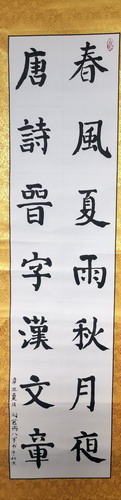 春風夏雨秋月夜
唐詩晉字漢文章